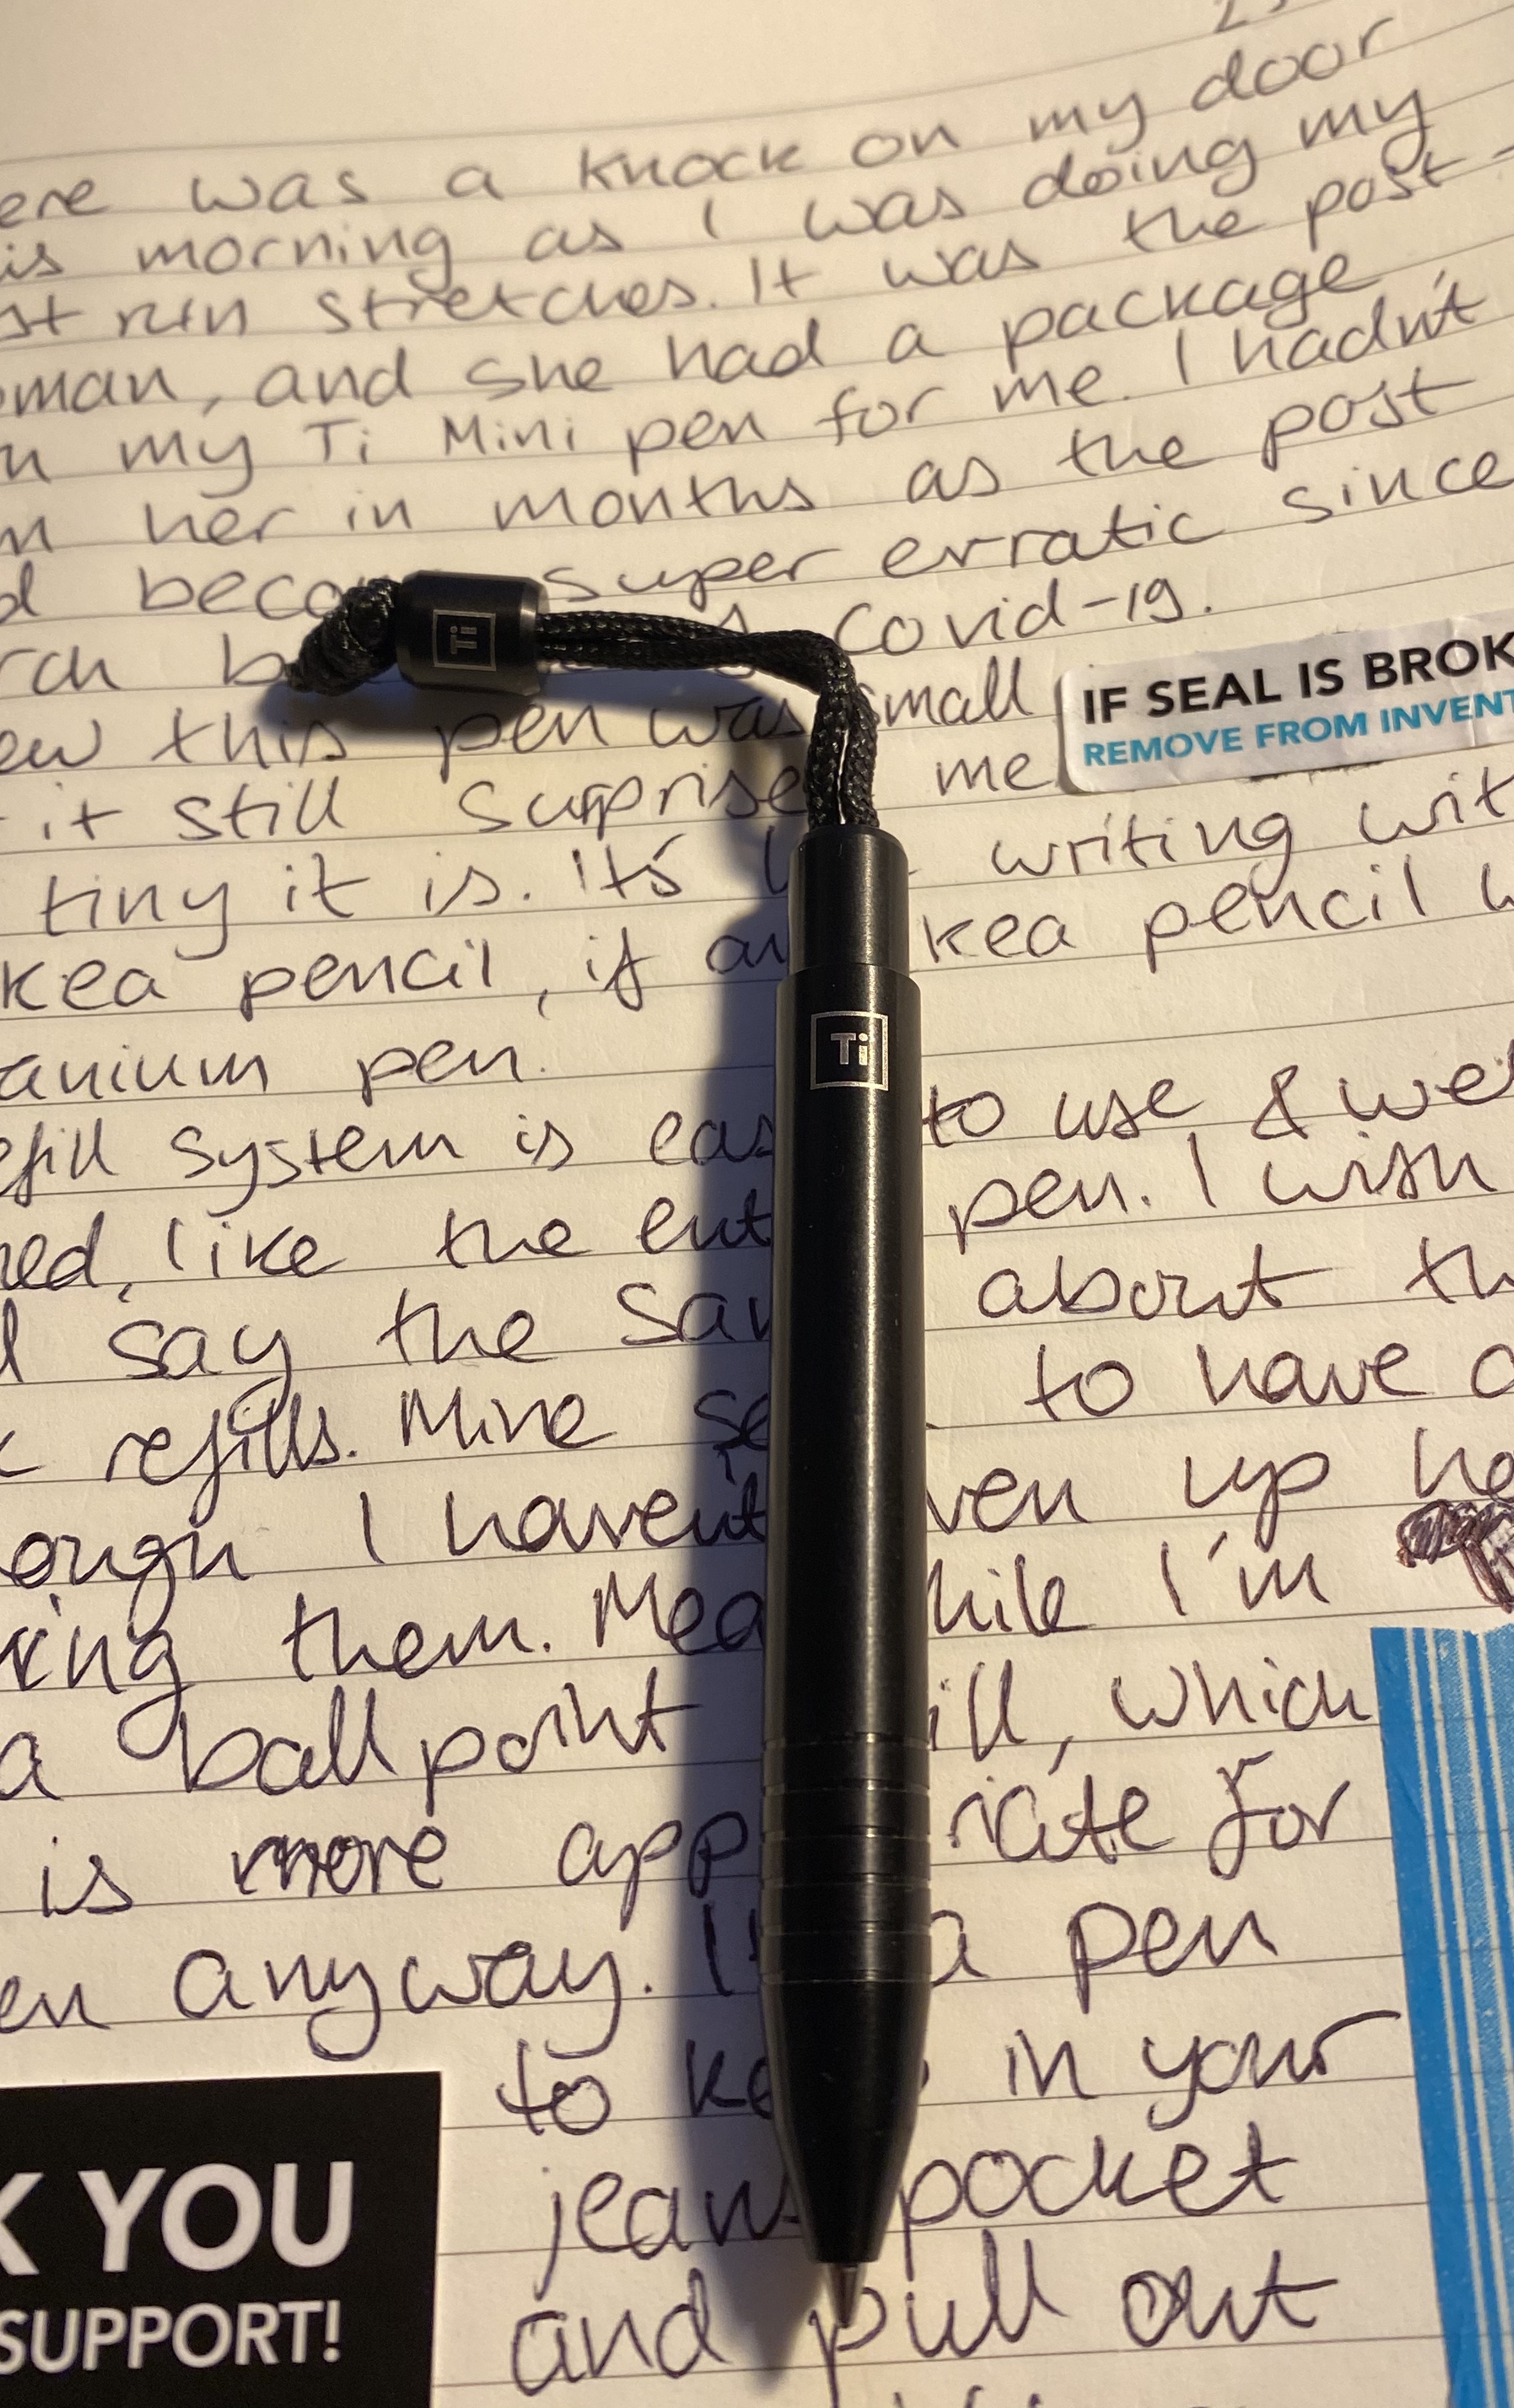 ere was a knock on my door
is morning as I was doing my
st run stretches. It was the post-
oman, and she had a package
n my Ti Mini pen for me. I hadn't
n her in months as the post
d beco super erratic since
rch b s Covid-19.
ew this pen was small
it still surprise me
tiny it is. It's writing wit
kea pencil, if an kea pencil w
anium pen.
efill system is eas to use & we
ned, like the ent pen. I wish
d say the sam about th
k refills. Mine se to have a
ough I haven't ven up ho
king them. Mea hile I'm
a ballpoint ill, which
is more app riate for
en anyway. It a pen
to ke in your
jeans pocket
and pull out
Ti
Ti
IF SEAL IS BROK
REMOVE FROM INVENT
K YOU
SUPPORT!